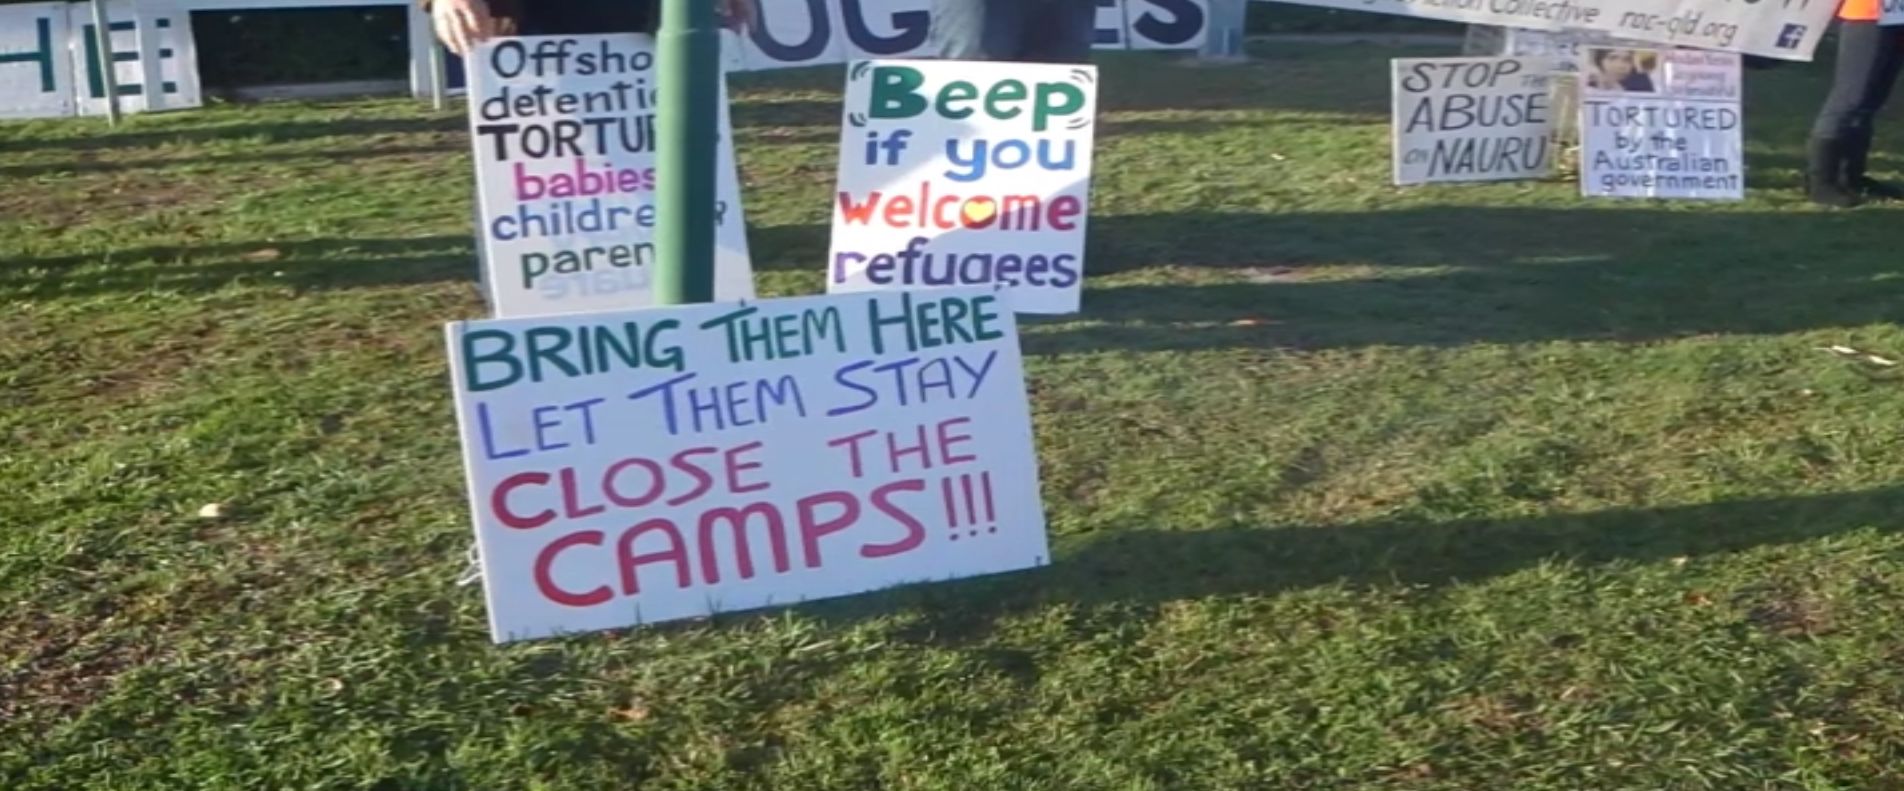 HE
UG
ES
Collective rac-qld.org
Offsho
detenti
TORTU
babies
childre
paren
Beep
if you
welcome
refugees
STOP THE
ABUSE
on NAURU
TORTURED
by the
Australian
government
BRING THEM HERE
LET THEM STAY
CLOSE THE
CAMPS!!!